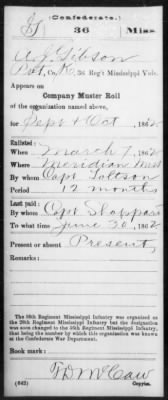 (Confederate.)
G 36 Miss
A. J. Gibson
Pvt, Co. K, 36 Reg't Mississippi Vols.
Appears on
Company Muster Roll
of the organization named above,
for Sept & Oct, 1862
Enlisted:
When March 7, 1862
Where Meridian Miss
By whom Capt
Period 12 months
Last paid:
By whom Capt Sheppard
To what time June 30, 1862
Present or absent Present
Remarks:
The 36th Regiment Mississippi Infantry was organized as the
Mississippi Infantry but the designation
was changed to the 36th Regiment Mississippi Infantry,
that being the number by which this organization was known at
the Confederate War Department.
Book mark:
(642)